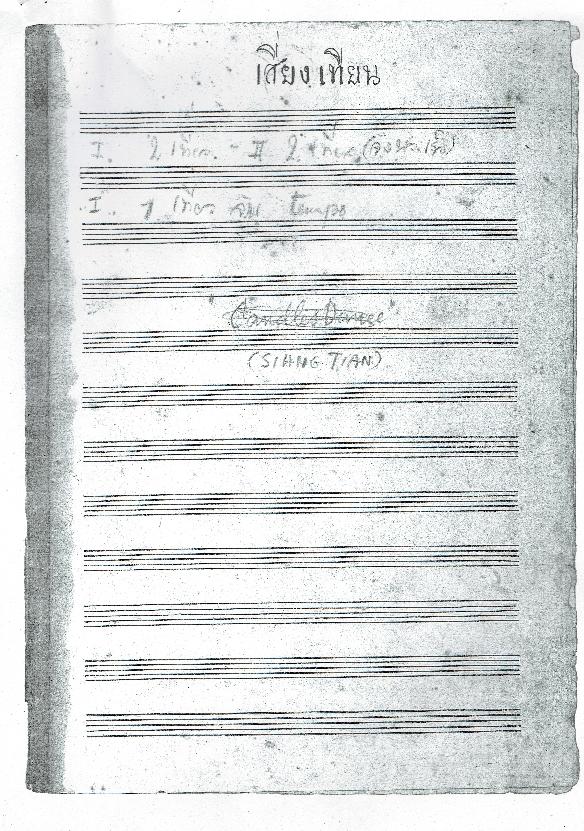 เสี่ยงเทียน
I. 2 เที่ยว - II 2 เที่ยว
I. 1 เที่ยว tempo
"Candles Dance"
(SIANG TIAN)